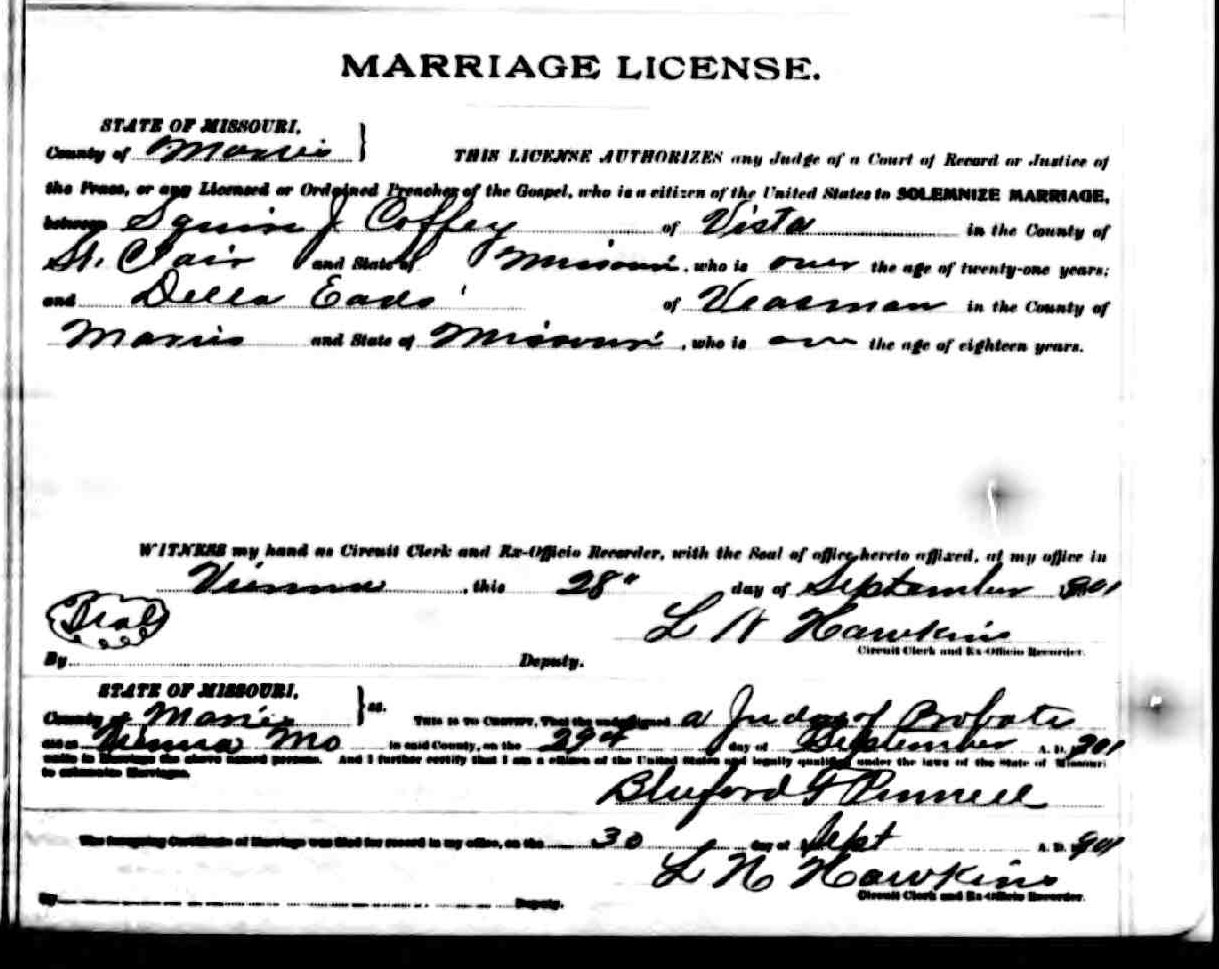 MARRIAGE LICENSE.
STATE OF MISSOURI,
County of Maries } THIS LICENSE AUTHORIZES any Judge of a Court of Record or Justice of
the Peace, or any Licensed or Ordained Preacher of the Gospel, who is a citizen of the United States to SOLEMNIZE MARRIAGE,
between Squire J Coffey of Vista in the County of
St. Clair and State of Missouri, who is over the age of twenty-one years;
and Della Eads of Veasman in the County of
Maries and State of Missouri, who is over the age of eighteen years.
WITNESS my hand as Circuit Clerk and Ex-Officio Recorder, with the Seal of office hereto affixed, at my office in
Vienna, this 28" day of September 1901
Seal L N Hawkins
Circuit Clerk and Ex-Officio Recorder.
By Deputy.
STATE OF MISSOURI,
County of Maries } ss. THIS IS TO CERTIFY, That the undersigned a Judge of Probate
Vienna Mo in said County, on the 29th day of September A. D. 1901
unite in Marriage the above named persons. And I further certify that I am a citizen of the United States and legally qualified under the laws of the State of Missouri
to solemnize Marriages.
Bluford F Pinnell
The foregoing Certificate of Marriage was filed for record in my office, on the 30 day of Sept A. D. 1901
L N Hawkins
Circuit Clerk and Ex-Officio Recorder.
By Deputy.